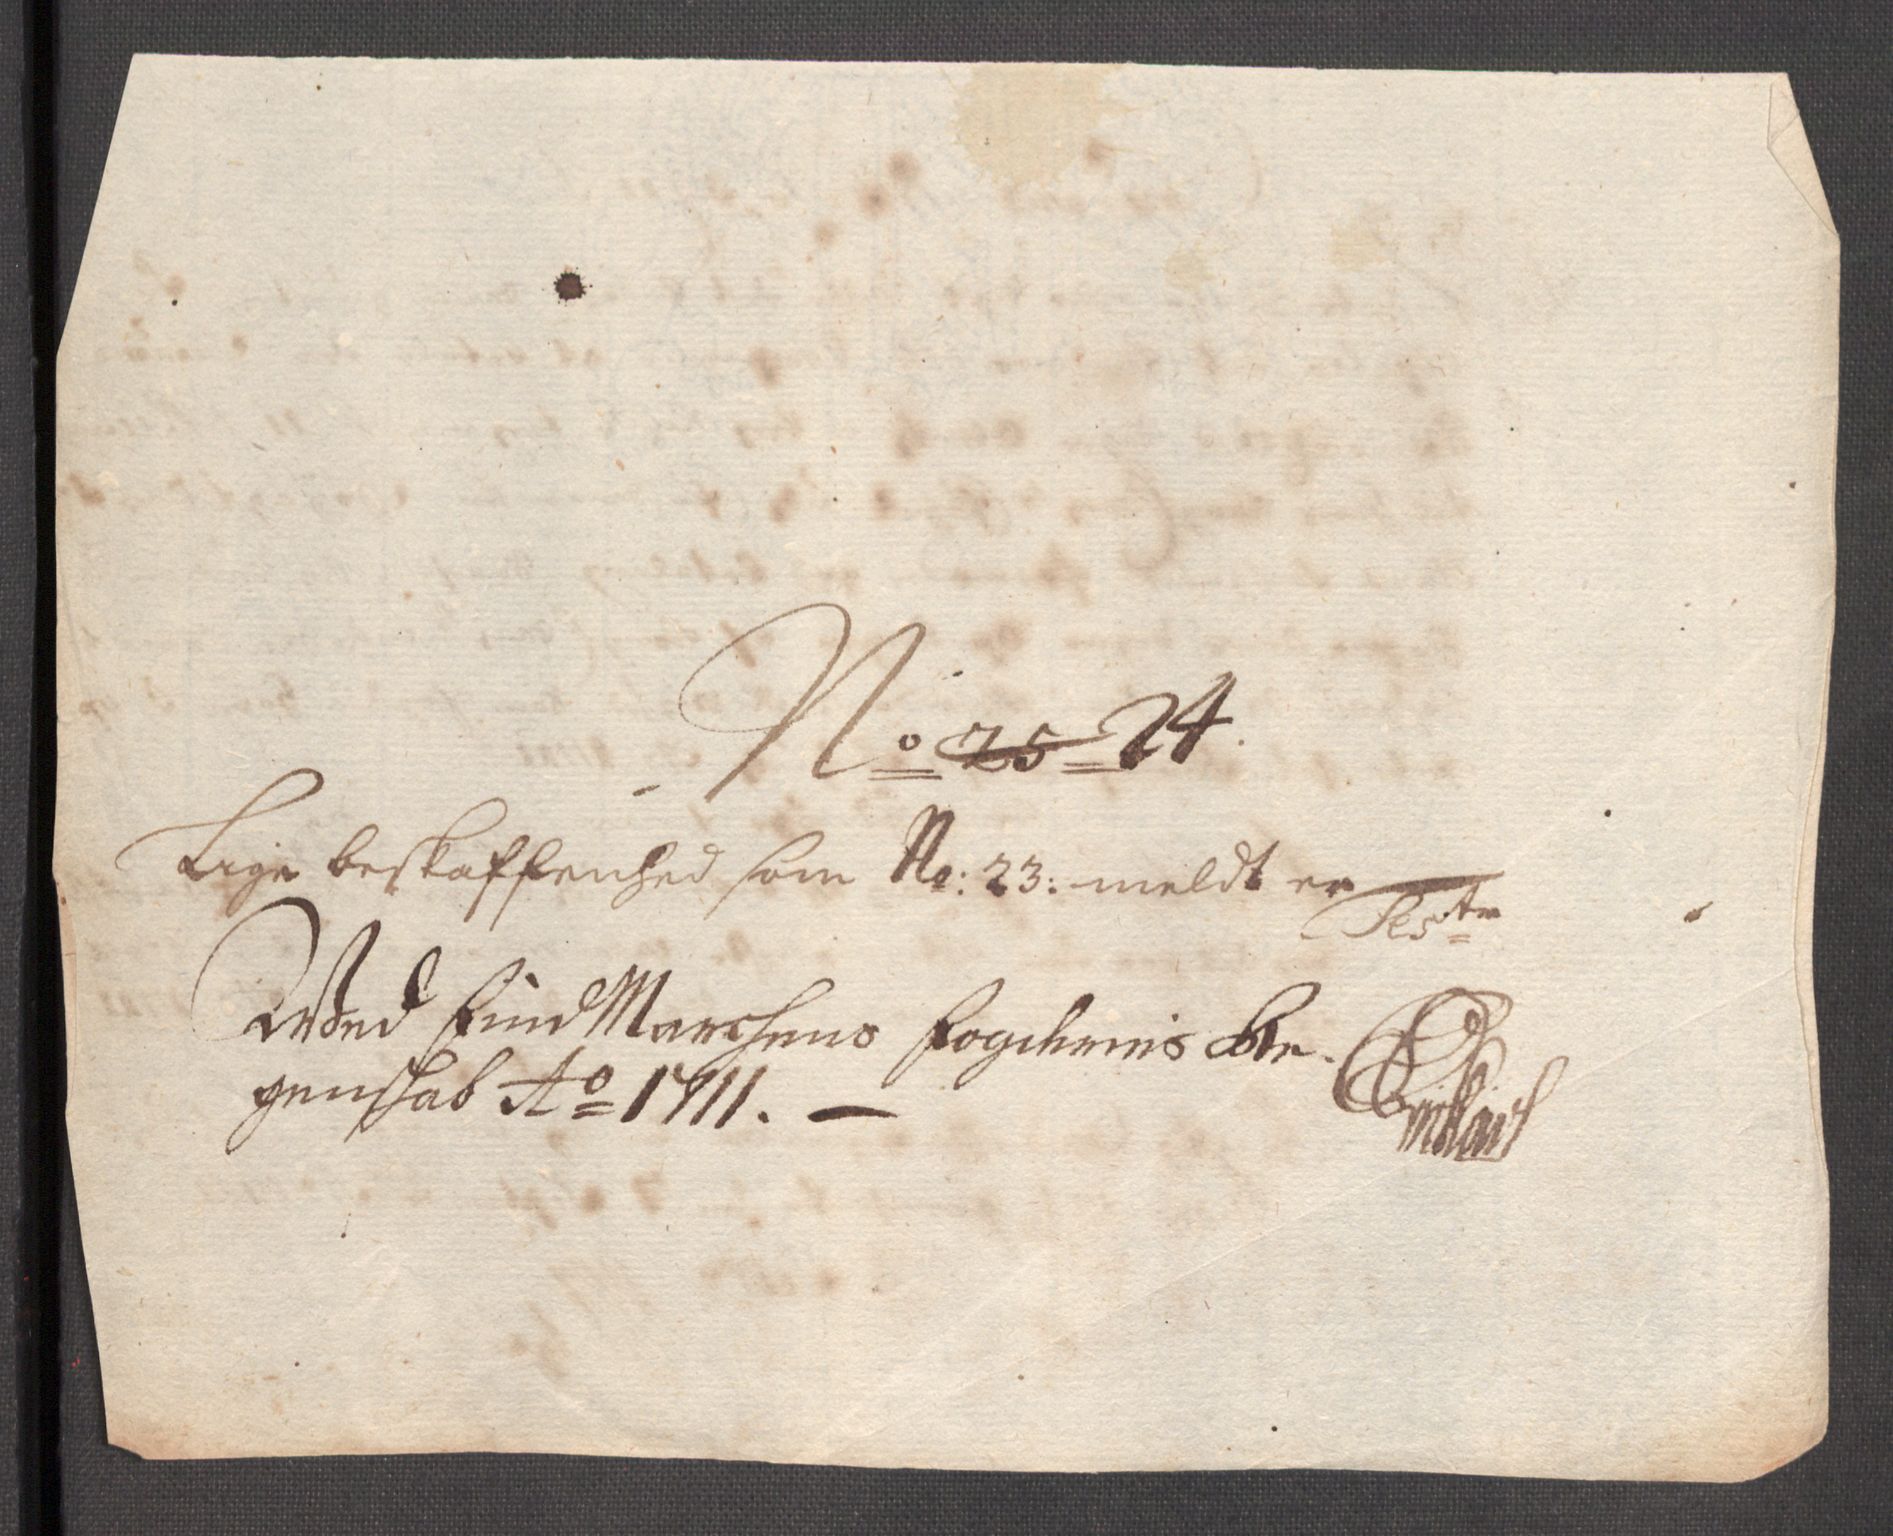 No 25 24.
Lige beskaffenhed som No: 23: meldt er
Test
Wed Find Marchens fogderies Re-
genskab Ao 1711. —